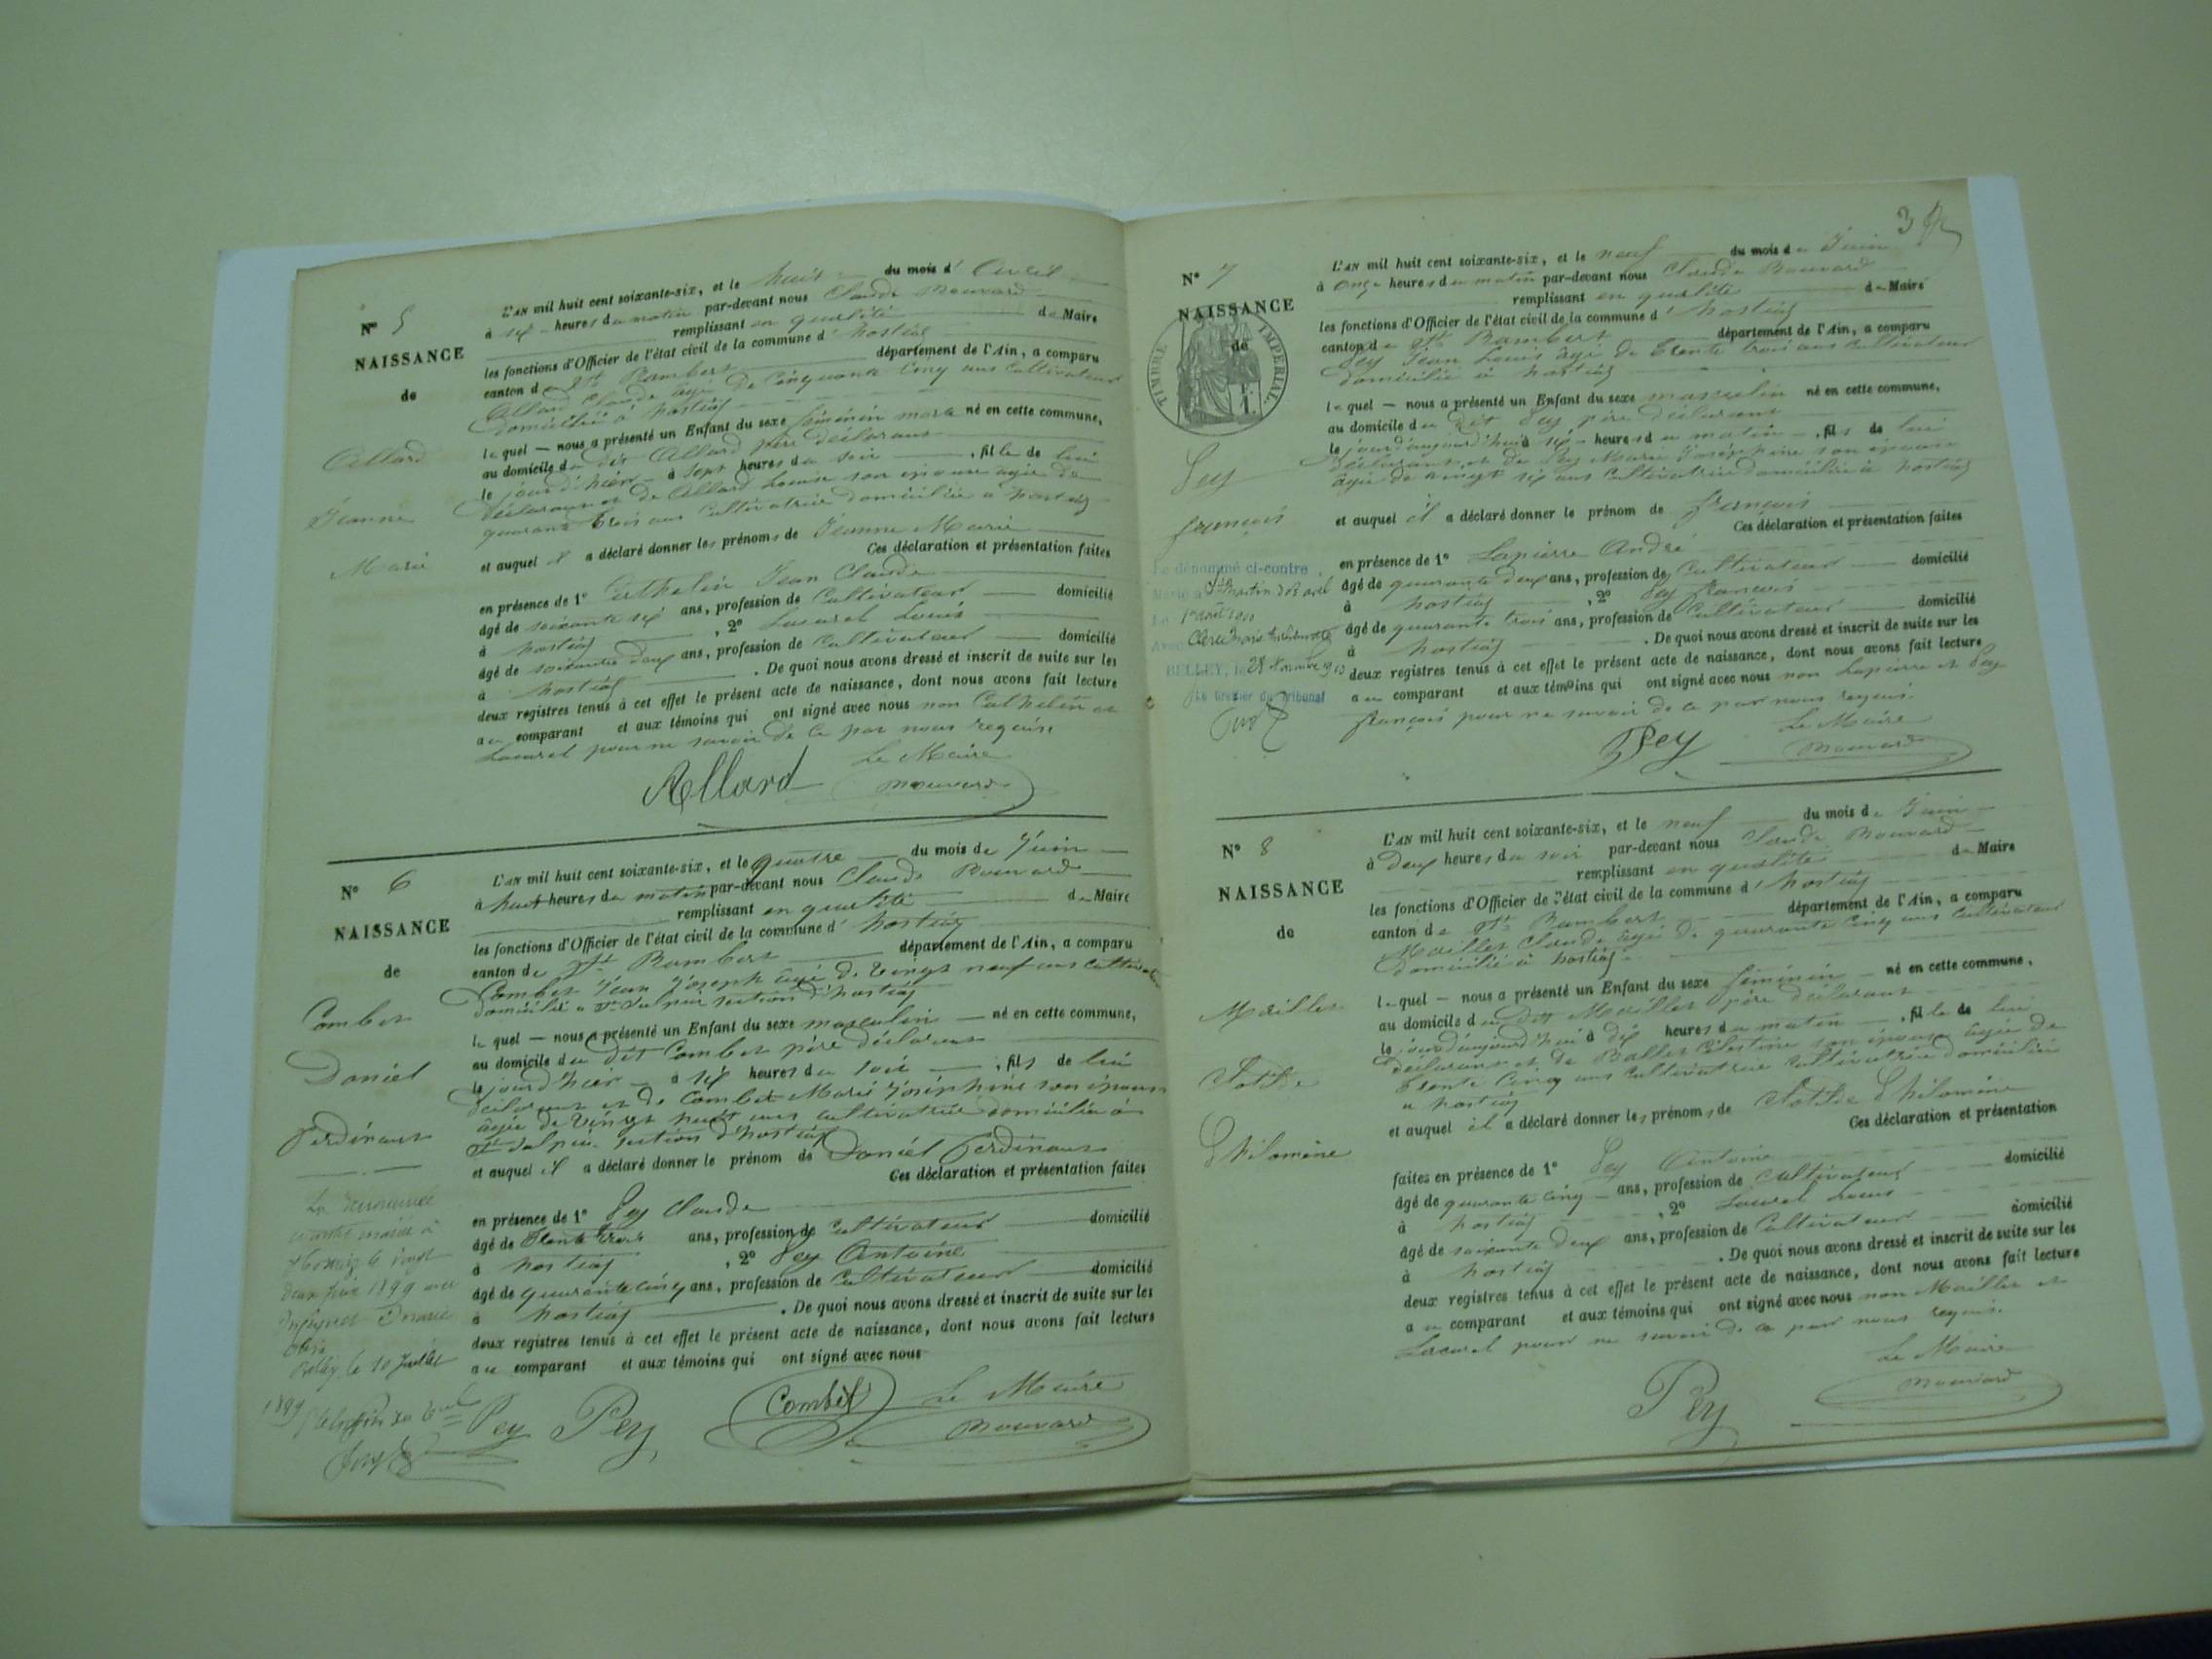 N° 5
NAISSANCE
de
Allard
Jeanne
Marie
L'AN mil huit cent soixante-six, et le huit du mois d'Avril
à six heures du matin par-devant nous Claude Bouvard
remplissant en qualité de Maire
les fonctions d'Officier de l'état civil de la commune d'hostiaz
canton de St Rambert département de l'Ain, a comparu
Allard Claude âgé de Cinquante Cinq ans Cultivateur
domicilié à hostiaz
lequel — nous a présenté un Enfant du sexe féminin né en cette commune,
au domicile du dit Allard père déclarant
le jour d'hier à sept heures du soir , fille de lui
déclarant et de Allard Louise son épouse âgée de
quarante trois ans Cultivatrice domiciliée à hostiaz
et auquel il a déclaré donner les prénoms de Jeanne Marie
Ces déclaration et présentation faites
en présence de 1° Cathelin Jean Claude
âgé de soixante six ans, profession de Cultivateur domicilié
à hostiaz , 2° Lacurel Louis
âgé de soixante deux ans, profession de Cultivateur domicilié
à hostiaz . De quoi nous avons dressé et inscrit de suite sur les
deux registres tenus à cet effet le présent acte de naissance, dont nous avons fait lecture
au comparant et aux témoins qui ont signé avec nous non Cathelin et
Lacurel pour ne savoir de ce par nous requis.
Le Maire
Allard Bouvard
N° 6
NAISSANCE
de
Combet
Daniel
Ferdinant
L'AN mil huit cent soixante-six, et le quatre du mois de Juin
à huit heures du matin par-devant nous Claude Bouvard
remplissant en qualité de Maire
les fonctions d'Officier de l'état civil de la commune d'hostiaz
canton de St Rambert département de l'Ain, a comparu
Combet Jean Joseph âgé de vingt neuf ans
domicilié à St Sulpice section d'hostiaz
lequel — nous a présenté un Enfant du sexe masculin — né en cette commune,
au domicile du dit Combet père déclarant
le jour d'hier — à six heures du soir , fils de lui
déclarant et de Combet Marie Joséphine son épouse
âgée de vingt huit ans cultivatrice domiciliée à
St Sulpice section d'hostiaz
et auquel il a déclaré donner le prénom de Daniel Ferdinant
Ces déclaration et présentation faites
en présence de 1° Pey Claude
âgé de trente trois ans, profession de Cultivateur domicilié
à hostiaz , 2° Pey Antoine
âgé de quarante cinq ans, profession de Cultivateur domicilié
à hostiaz . De quoi nous avons dressé et inscrit de suite sur les
deux registres tenus à cet effet le présent acte de naissance, dont nous avons fait lecture
au comparant et aux témoins qui ont signé avec nous
Le Maire
Pey Pey Combet Bouvard
1899
3
N° 7
NAISSANCE
de
TIMBRE IMPERIAL
Pey
françois
Le dénommé ci-contre
BELLEY, le 28 Novembre
Le Greffier du Tribunal
L'AN mil huit cent soixante-six, et le neuf du mois de Juin
à onze heures du matin par-devant nous Claude Bouvard
remplissant en qualité de Maire
les fonctions d'Officier de l'état civil de la commune d'hostiaz
canton de St Rambert département de l'Ain, a comparu
Pey Jean Louis âgé de trente trois ans cultivateur
domicilié à hostiaz
lequel — nous a présenté un Enfant du sexe masculin né en cette commune,
au domicile du dit Pey père déclarant
le jour d'aujourd'hui à six heures du matin , fils de lui
déclarant et de Pey Marie Joséphine son épouse
âgée de vingt six ans cultivatrice domiciliée à hostiaz
et auquel il a déclaré donner le prénom de françois
Ces déclaration et présentation faites
en présence de 1° Lapierre André
âgé de quarante deux ans, profession de Cultivateur domicilié
à hostiaz , 2° Pey françois
âgé de quarante trois ans, profession de Cultivateur domicilié
à hostiaz . De quoi nous avons dressé et inscrit de suite sur les
deux registres tenus à cet effet le présent acte de naissance, dont nous avons fait lecture
au comparant et aux témoins qui ont signé avec nous non Lapierre et Pey
françois pour ne savoir de ce par nous requis.
Le Maire
Pey Bouvard
N° 8
NAISSANCE
de
Maillet
Clotilde
Philomène
L'AN mil huit cent soixante-six, et le neuf du mois de Juin
à deux heures du soir par-devant nous Claude Bouvard
remplissant en qualité de Maire
les fonctions d'Officier de l'état civil de la commune d'hostiaz
canton de St Rambert département de l'Ain, a comparu
Maillet Claude âgé de quarante Cinq ans cultivateur
domicilié à hostiaz
lequel — nous a présenté un Enfant du sexe féminin né en cette commune,
au domicile du dit Maillet père déclarant
le jour d'aujourd'hui à dix heures du matin , fille de lui
déclarant et de Ballet Célestine son épouse âgée de
trente Cinq ans cultivatrice domiciliée
à hostiaz
et auquel il a déclaré donner les prénoms de Clotilde Philomène
Ces déclaration et présentation
faites en présence de 1° Pey Antoine
âgé de quarante cinq ans, profession de cultivateur domicilié
à hostiaz , 2° Lacurel Louis
âgé de soixante deux ans, profession de Cultivateur domicilié
à hostiaz . De quoi nous avons dressé et inscrit de suite sur les
deux registres tenus à cet effet le présent acte de naissance, dont nous avons fait lecture
au comparant et aux témoins qui ont signé avec nous non Maillet et
Lacurel pour ne savoir de ce par nous requis.
Le Maire
Pey Bouvard